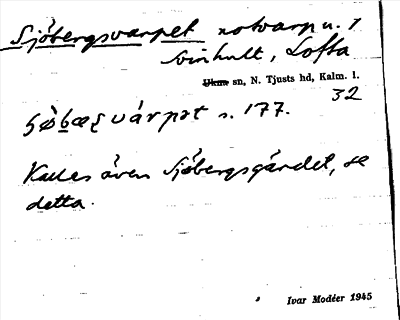 Sjöbergsvarpet notvarp u. 1
Svinhult, Lofta
Ukna sn, N. Tjusts hd, Kalm. l.
32
várpət s. 177.
Kallas även Sjöbergsgärdet, se
detta.
Ivar Modéer 1945